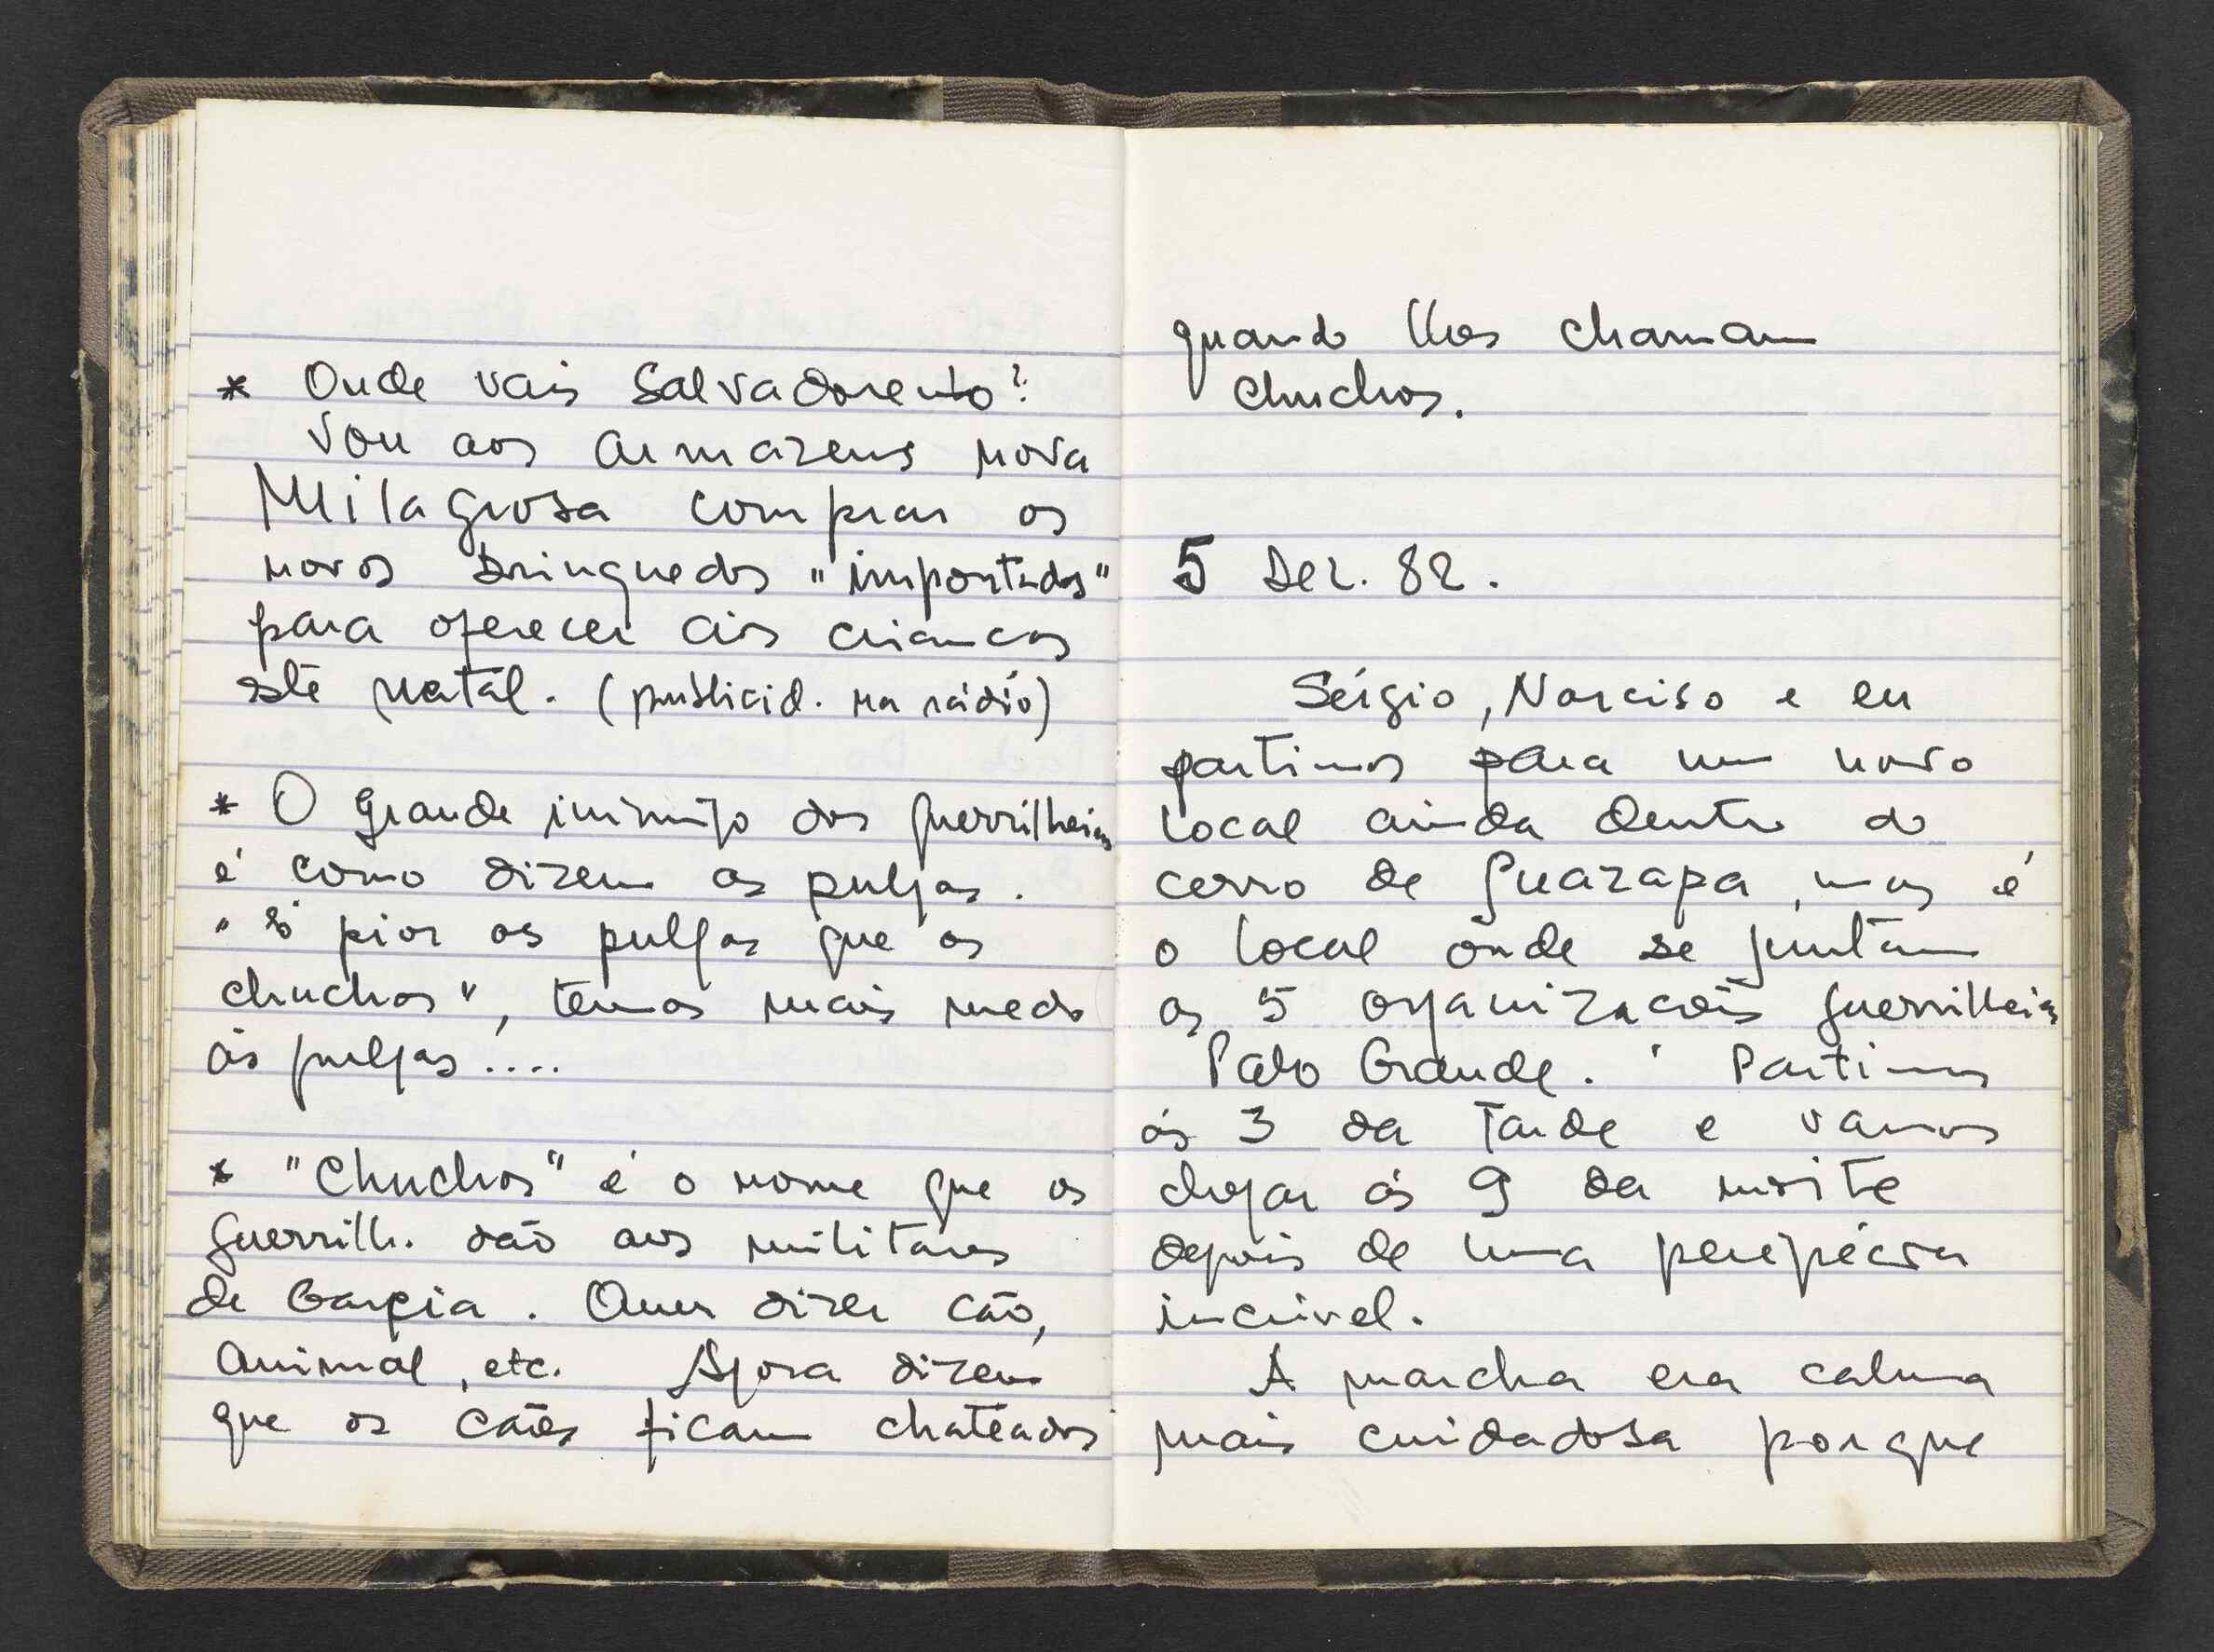 * Onde vais Salvadorento?
Vou aos armazens nova
Milagrosa comprar os
novos brinquedos "importados"
para oferecer ás criancas
este natal. (publicid. na rádio)
* O grande inimigo dos guerrilheiros
é como dizem as pulgas.
"É pior as pulgas que os
chuchos", temos mais medo
ás pulgas....
* "Chuchos" é o nome que os
guerrilh. dão aos militares
de Garcia. Quer dizer cão,
animal, etc. Agora dizem
que os cães ficam chateados
quando lhes chamam
chuchos.
5 Dez. 82.
Sérgio, Narciso e eu
partimos para um novo
local ainda dentro do
cerro de Guazapa, mas é
o local onde se juntam
as 5 organizacões guerrilheiras
Palo Grande. Partimos
ás 3 da tarde e vamos
chegar ás 9 da noite
depois de uma perepécia
incrivel.
A marcha era calma
mais cuidadosa porque